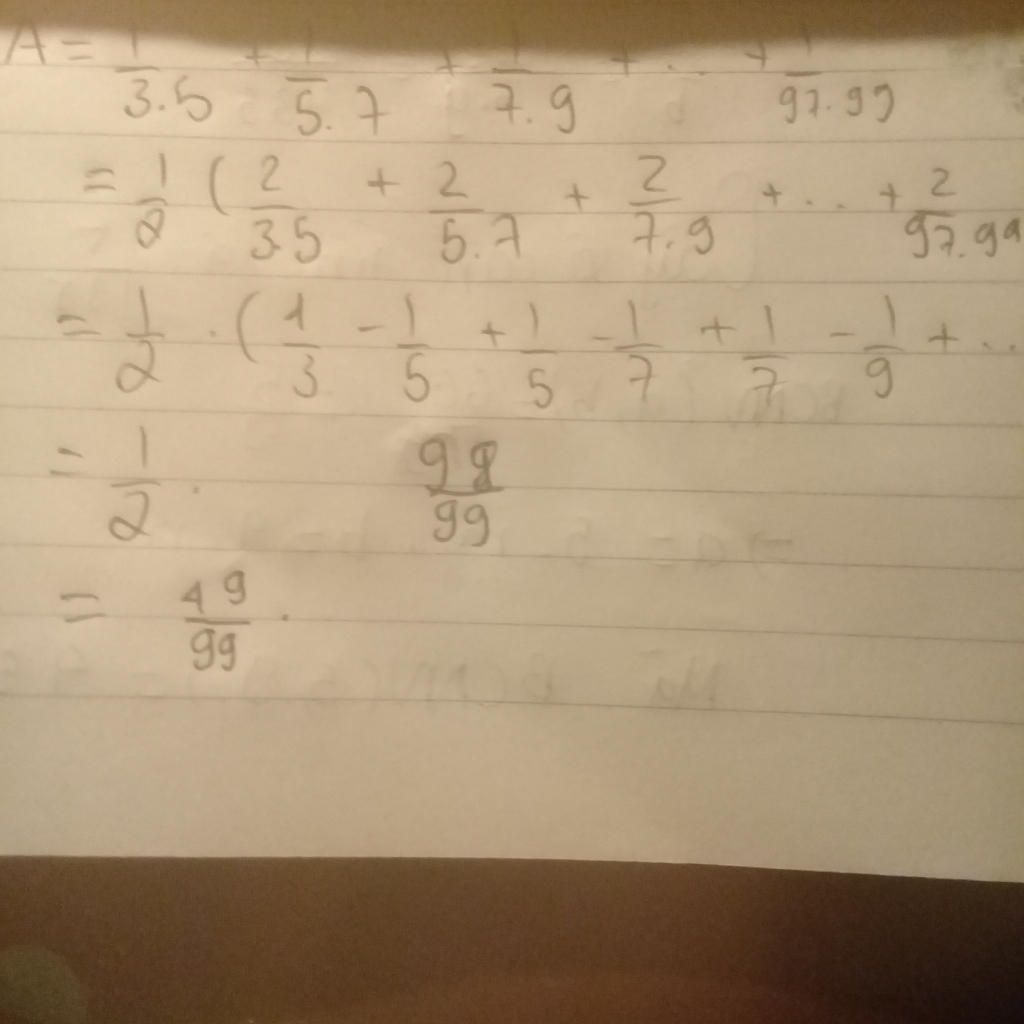 A = 1/3.5 + 1/5.7 + 1/7.9 + .. + 1/97.99
= 1/2 ( 2/3.5 + 2/5.7 + 2/7.9 + .. + 2/97.99
= 1/2 . ( 1/3 - 1/5 + 1/5 - 1/7 + 1/7 - 1/9 + ..
= 1/2 . 98/99
= 49/99 .